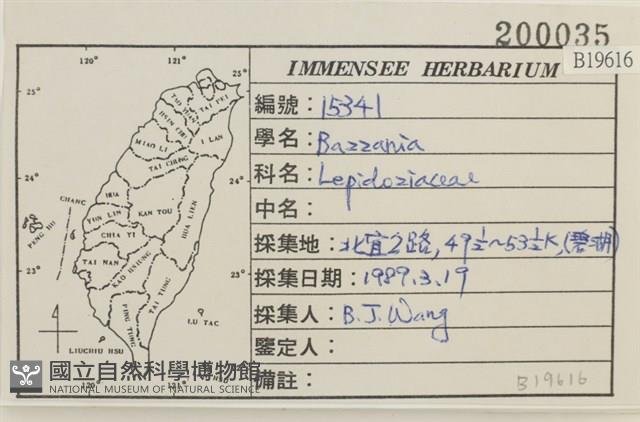 200035
B19616
IMMENSEE HERBARIUM
編號：15341
學名：Bazzania
科名：Lepidoziaceae
中名：
採集地：北宜公路, 49½~53½K, (碧湖)
採集日期：1989.3.19
採集人：B.J. Wang
鑒定人：
備註：
B19616
120° 121°
25° 25°
TAI PEI
TAO YUAN
HSIN CHU
I LAN
MIAO LI
TAI CHUNG
24° 24°
CHANG HUA
HUA LIEN
NAN TOU
YUN LIN
PENG HU
CHIA YI
TAI NAN
KAO HSIUNG
23° 23°
TAI TUNG
PING TUNG
LU TAO
LIUCHIU HSU
120° 121°
國立自然科學博物館
NATIONAL MUSEUM OF NATURAL SCIENCE